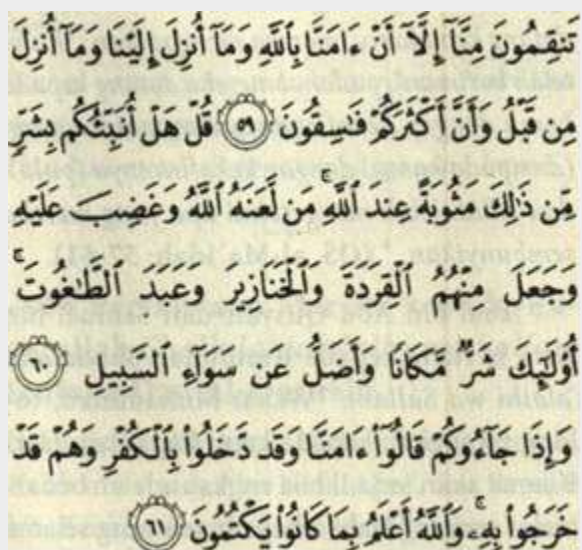 تَنقِمُونَ مِنَّآ إِلَّآ أَنْ ءَامَنَّا بِٱللَّهِ وَمَآ أُنزِلَ إِلَيْنَا وَمَآ أُنزِلَ
مِن قَبْلُ وَأَنَّ أَكْثَرَكُمْ فَٰسِقُونَ ٥٩ قُلْ هَلْ أُنَبِّئُكُم بِشَرٍّ
مِّن ذَٰلِكَ مَثُوبَةً عِندَ ٱللَّهِ ۚ مَن لَّعَنَهُ ٱللَّهُ وَغَضِبَ عَلَيْهِ
وَجَعَلَ مِنْهُمُ ٱلْقِرَدَةَ وَٱلْخَنَازِيرَ وَعَبَدَ ٱلطَّٰغُوتَ ۚ
أُو۟لَٰٓئِكَ شَرٌّ مَّكَانًا وَأَضَلُّ عَن سَوَآءِ ٱلسَّبِيلِ ٦٠
وَإِذَا جَآءُوكُمْ قَالُوٓا۟ ءَامَنَّا وَقَد دَّخَلُوا۟ بِٱلْكُفْرِ وَهُمْ قَدْ
خَرَجُوا۟ بِهِۦ ۚ وَٱللَّهُ أَعْلَمُ بِمَا كَانُوا۟ يَكْتُمُونَ ٦١